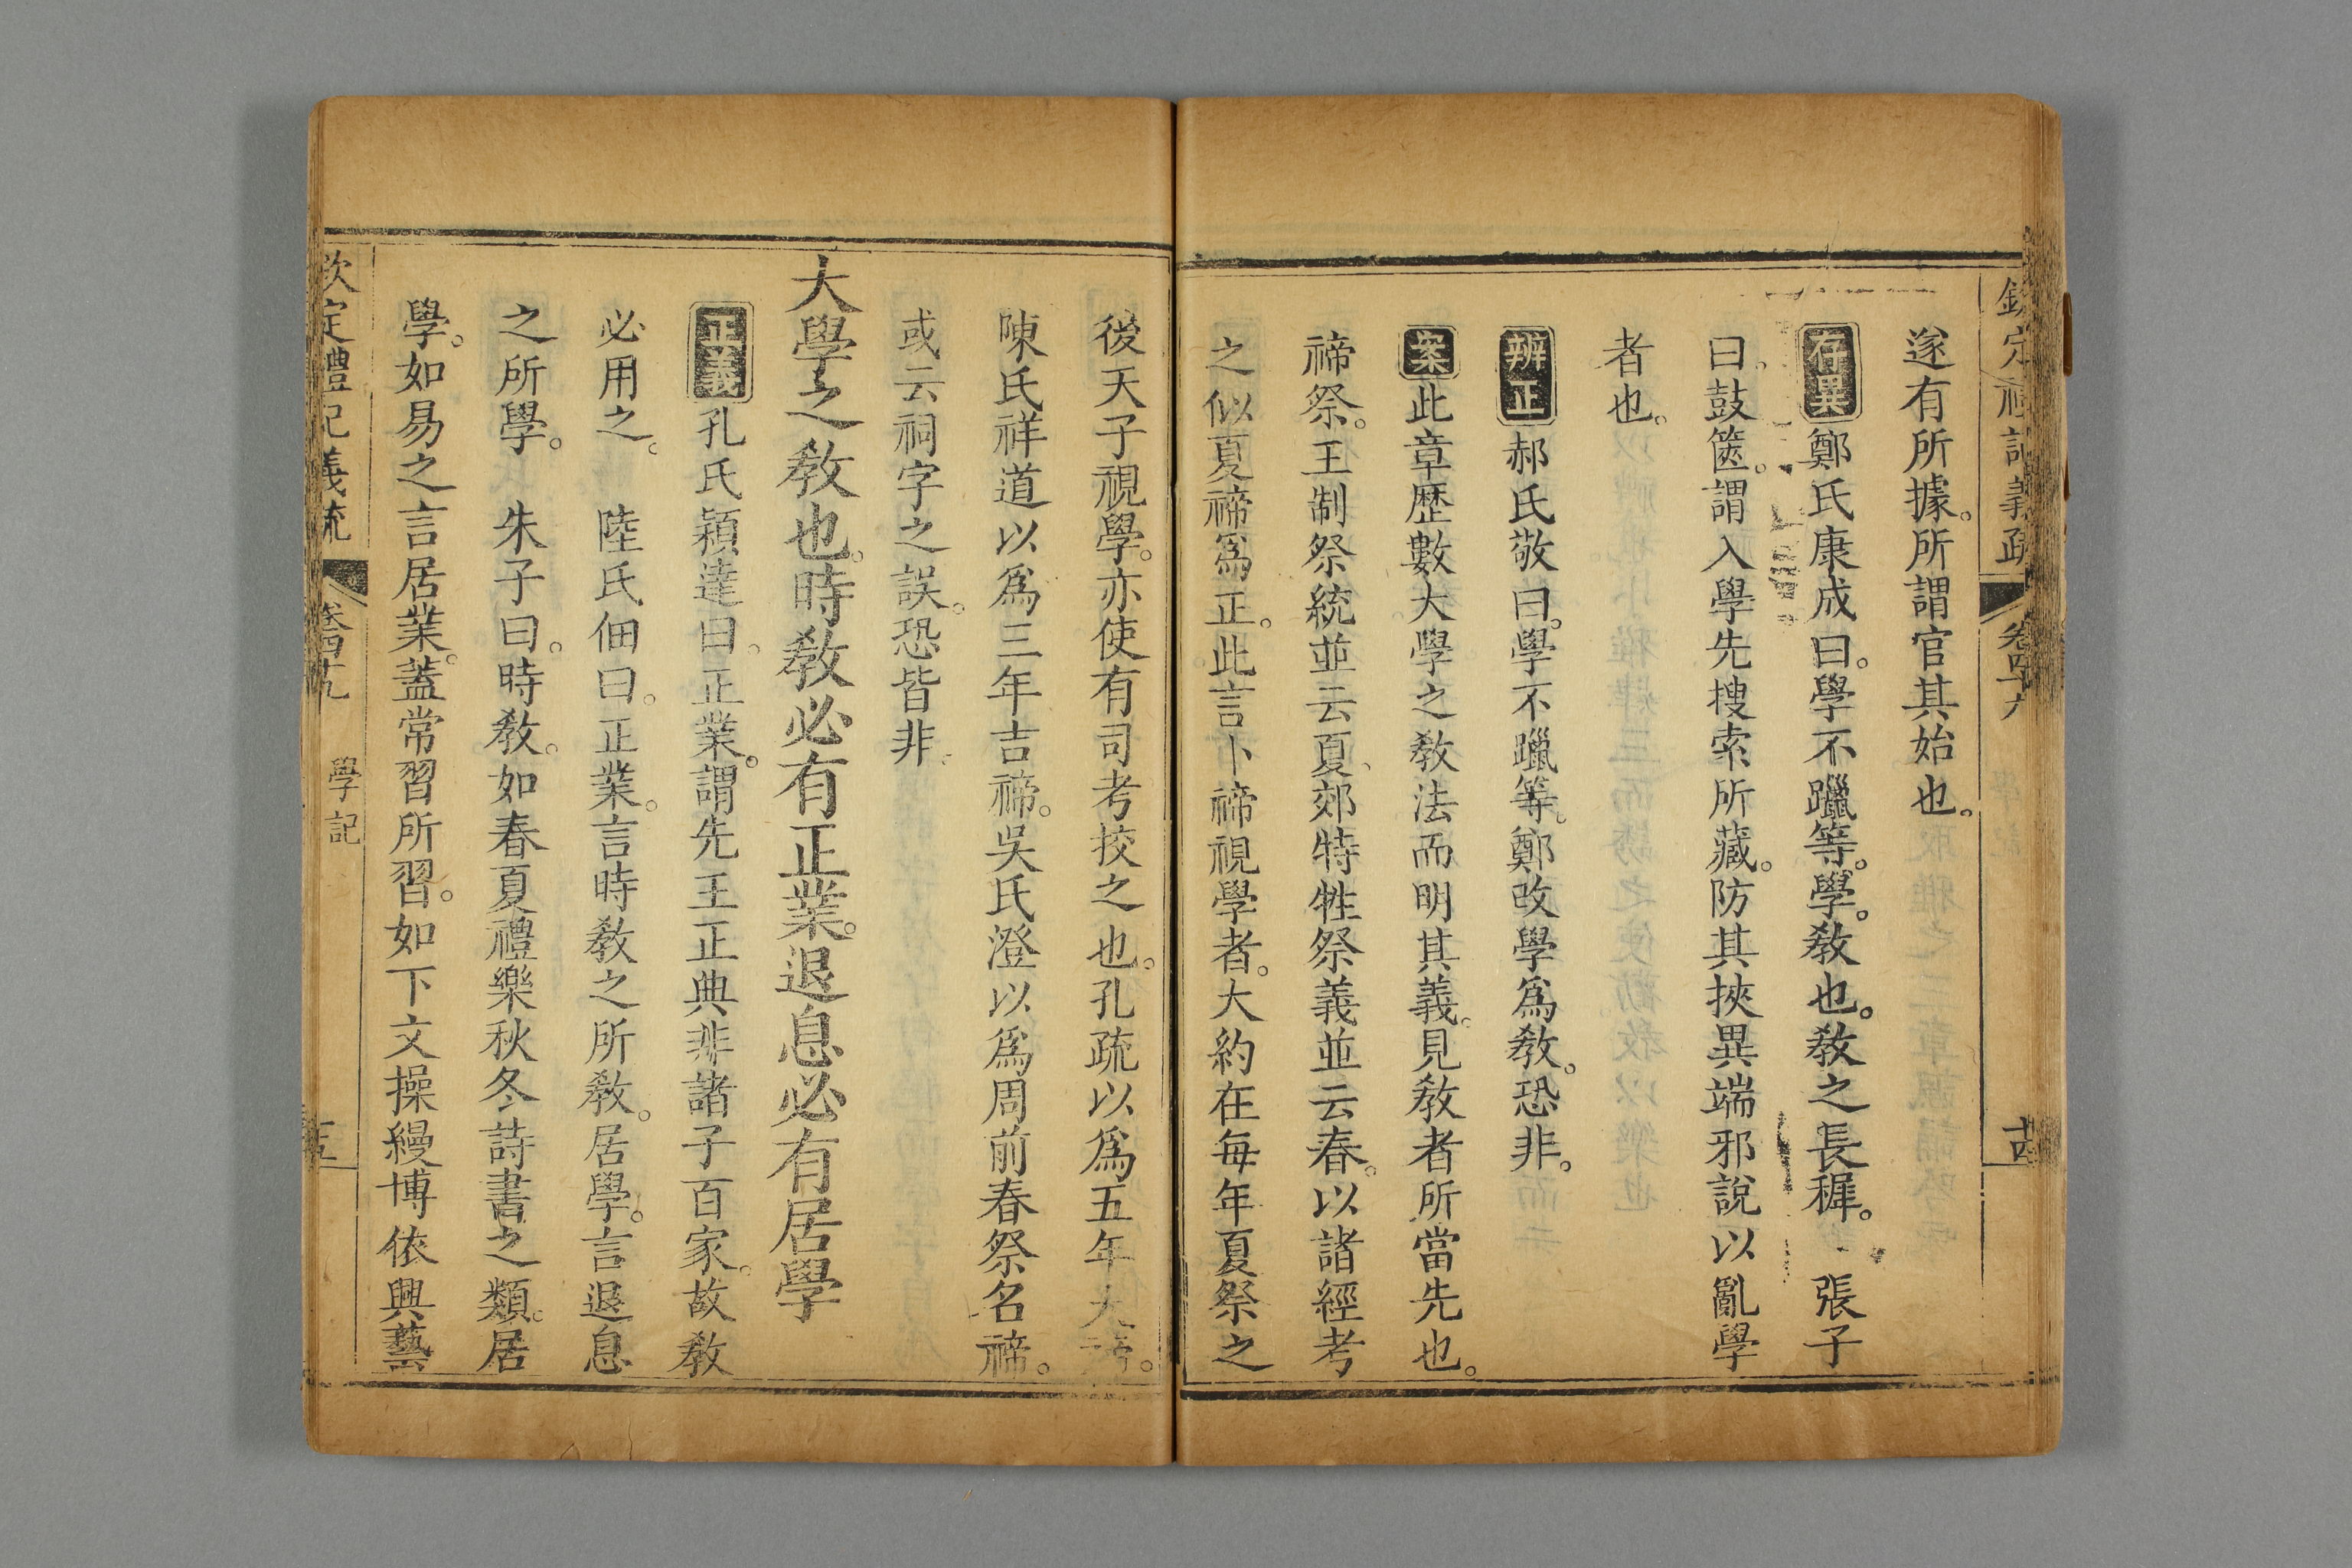 欽定禮記義疏 卷四十九 十四
遂有所據。所謂官其始也。
存異 鄭氏康成曰。學不躐等。學。敎也。敎之長穉。 張子
曰。鼓篋。謂入學先搜索所藏。防其挾異端邪說以亂學
者也。
辨正 郝氏敬曰。學不躐等。鄭改學爲敎。恐非。
案 此章歷數大學之敎法而明其義。見敎者所當先也。
禘祭。王制祭統並云夏、郊特牲祭義並云春。以諸經考
之似夏禘爲正。此言卜禘視學者。大約在每年夏祭之
後天子視學。亦使有司考挍之也。孔疏以爲五年大禘。
陳氏祥道以爲三年吉禘。吳氏澄以爲周前春祭名禘。
或云祠字之誤。恐皆非。
大學之敎也。時敎必有正業。退息必有居學
正義 孔氏穎達曰。正業。謂先王正典非諸子百家。故敎
必用之。 陸氏佃曰。正業。言時敎之所敎。居學。言退息
之所學。 朱子曰。時敎。如春夏禮樂秋冬詩書之類。居
學。如易之言居業。蓋常習所習。如下文操縵博依興藝
欽定禮記義疏 卷四十九 學記 十五